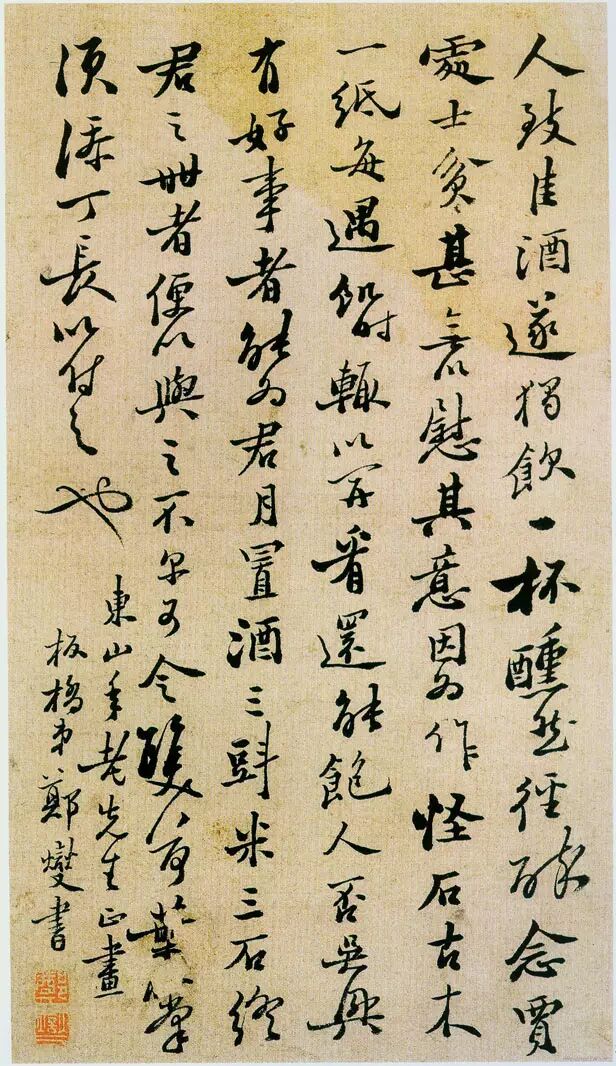 人致佳酒遂獨飲一杯醺然徑醉念賈
處士貧甚無以慰其意因為作怪石古木
一紙每遇饑時輒以開看還能飽人否吳興
有好事者能為君月置酒三㪷米三石終
君之世者便以與之不尔可令雙荷葉
須添丁長以付之也
東山年老先生正畫
板橋弟鄭燮書